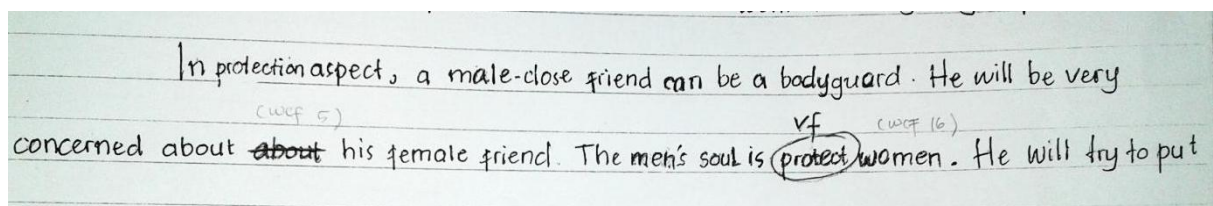 In protection aspect, a male-close friend can be a bodyguard. He will be very
(wcf 5) vf (wcf 16)
concerned about about his female friend. The men's soul is protect women. He will try to put